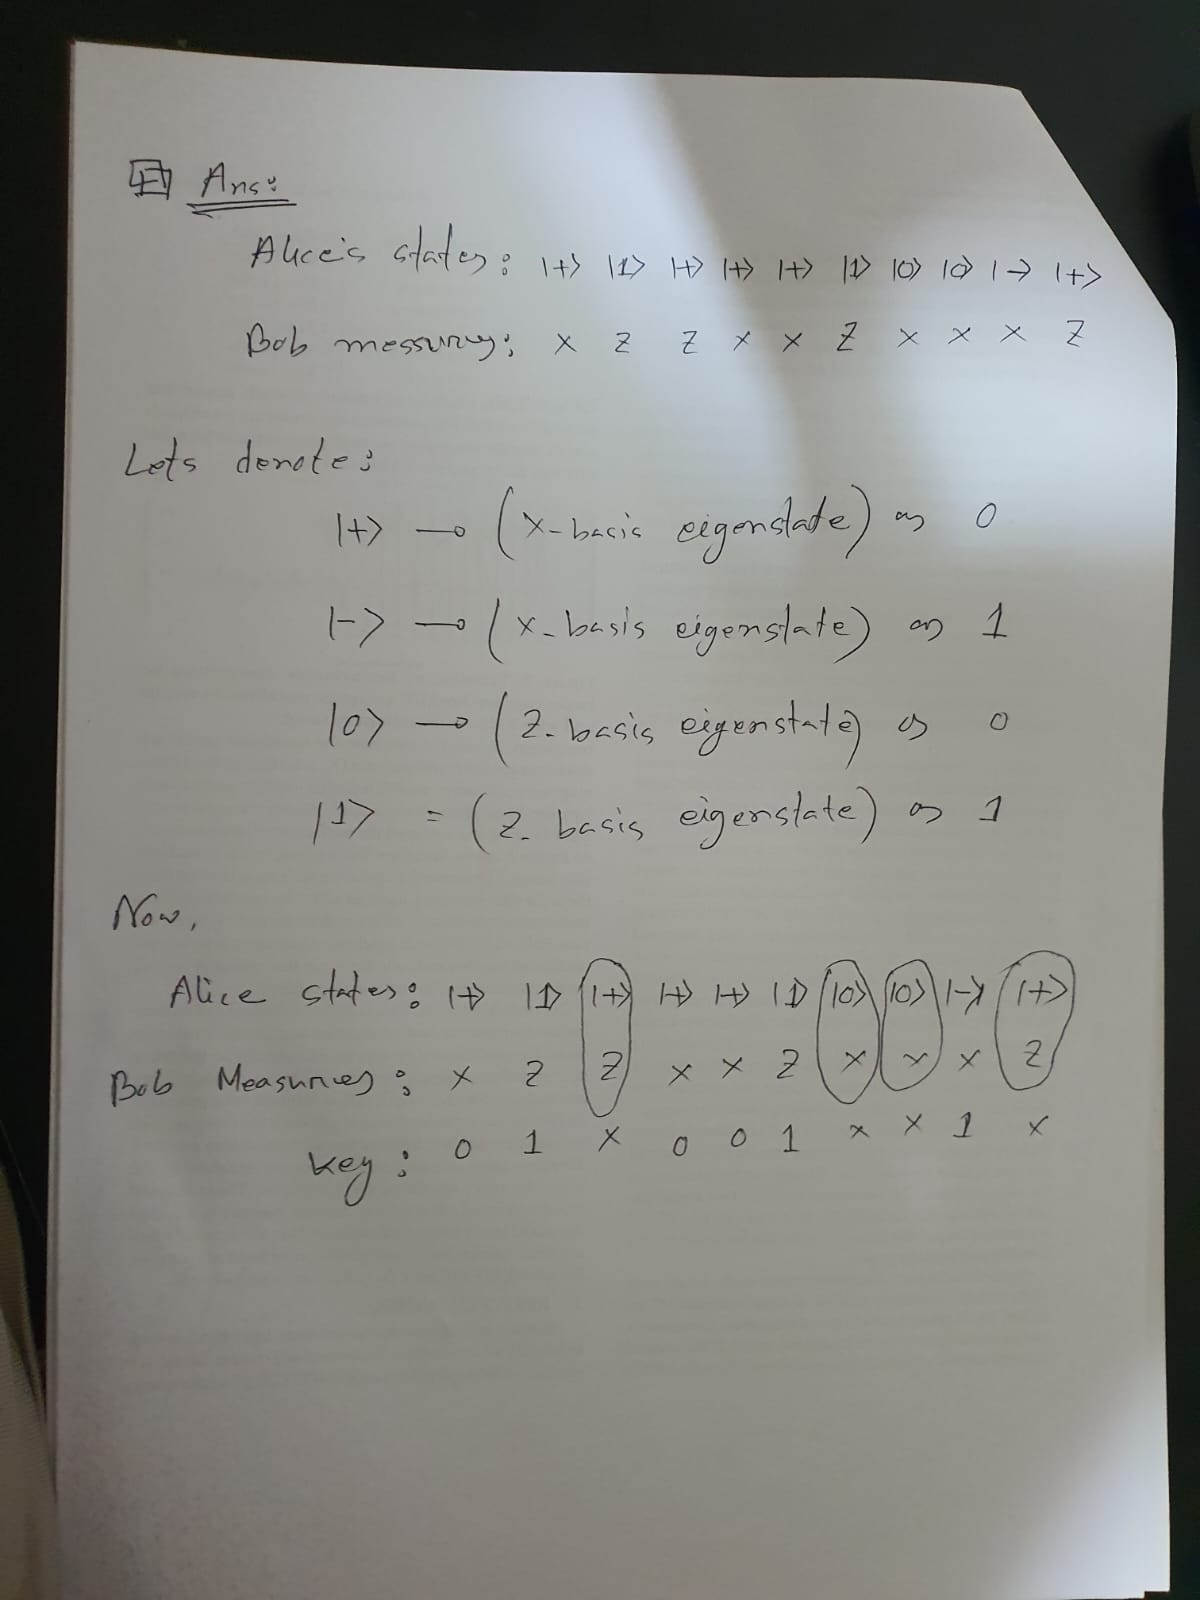 Ans:
Alice's states: |+> |1> |+> |+> |+> |1> |0> |0> |-> |+>
Bob messuring: x z z x x z x x x z
Lets denote:
|+> → (x-basis eigenstate) as 0
|-> → (x-basis eigenstate) as 1
|0> → (z-basis eigenstate) as 0
|1> = (z-basis eigenstate) as 1
Now,
Alice states: |+> |1> |+> |+> |+> |1> |0> |0> |-> |+>
Bob Measures: x z z x x z x x x z
Key: 0 1 x 0 0 1 x x 1 x